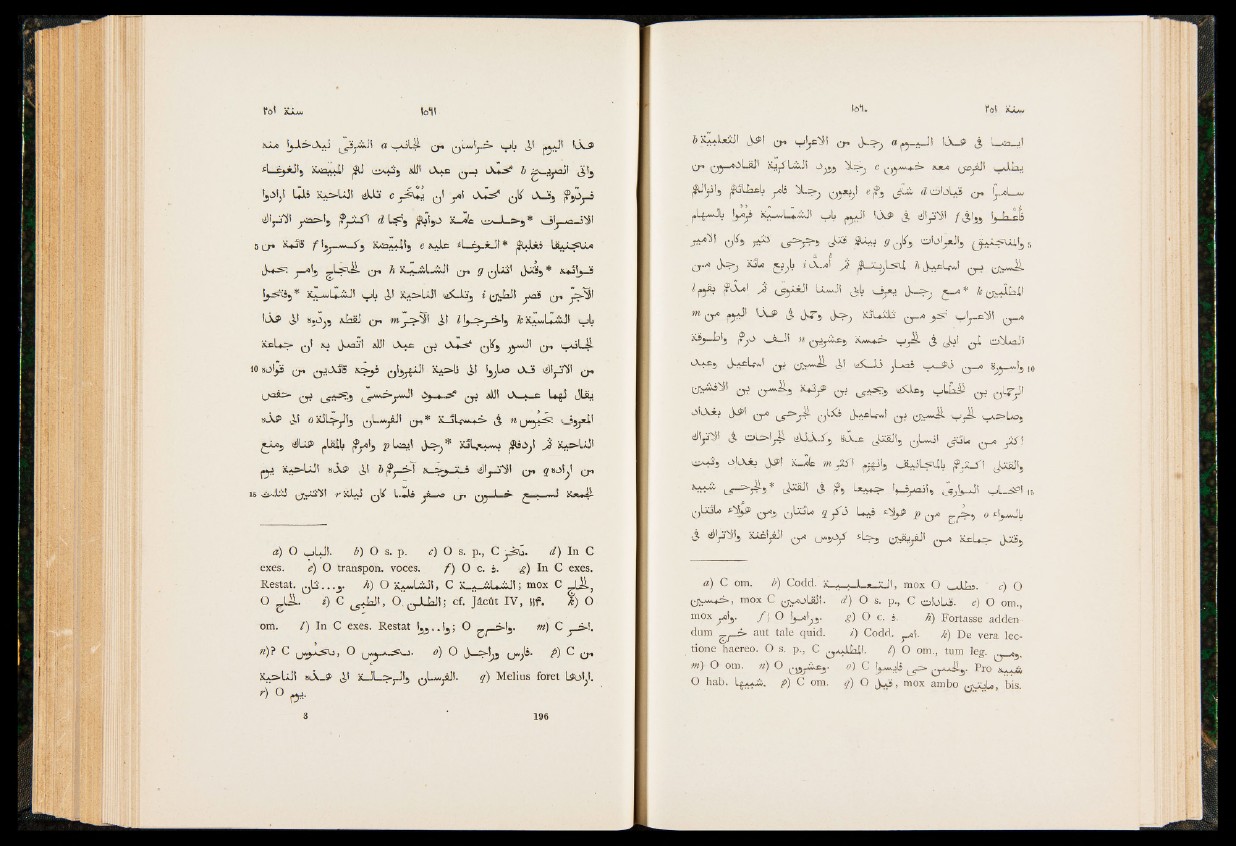 ١٥٦٠ سنة ٢٥١
ايضا فى هذا اليوم a رجل من الاعراب من اهل الثعلبيّة b
يطلب الفرض معه خمسون c رجلا وورد الشاكريّة القادمون من
سامرّا من قيادات d شتّى وهم e اربعون رجلا فامر باعطائهم وانزالهم
فأُعطوا ووافى f الاتراك فى هذا اليوم باب الشمّاسيّة فرُموا بالسهام
5 والمنجنيق والعرّادات وكان g بينهم قتلى وجرحى كثير وكان الامير
الحسين بن اسمعيل h لمحاربتهم ثم أُمدّ i باربع مائة رجل من
الملطيّين k *مع رجل يعرف بابى السنا الغنوى ثم امدّهم بقوم l
من الاعراب نحو من ثلثمائة رجل وحمل فى هذا اليوم من m
الصلات لمن ابلى فى الحرب خمسة وعشرين n الف درهم واطوقة
10 واسورة من ذهب فصار ذلك الى الحسين بن اسمعيل وعبد
الرحمان بن خطّاب وعلك ويحيى بن هرثمة والحسن بن الافشين
وصاحب حرب الحسين بن اسمعيل فكان الجرحى من اهل بغداد
اكثر من مائتى انسان والقتلى عدّة وكذلك الجراحات فى الاتراك
والقتلى اكثرهم بالمجانيق وانهزم اكثر m عامّة اهل بغداد وثبت
15 اصحاب البوارى وانصرفوا جميعا وهم فى القتلى *والجرحى شبيه
بالسواء o وجُرح من p هؤلاء فيما ذكر q مائتان ومن هؤلاء مائتان
وقتل جماعة من الفريقين وجاء كردوس من الفراغنة والاتراك فى
a) C om. b) Codd. , mox O يطلب. c) O
خمسين, mox C القادمين. d) O s. p., C قيادات. e) O om.,
mox وامر. f) O ووافوا. g) O c. ف. h) Fortasse adden-
dum خرج aut tale quid. i) Codd. امر. k) De vera lec-
tione haereo. O s. p., C المطلبين. l) O om., tum leg. ومن.
m) O om. n) O وعشرون. o) C . Pro شبيه
O hab. شبيها. p) C om. q) O قيل, mox ambo مايتين, bis.
سنة ٢٥١ ١٥٦١
هذا اليوم الى باب خراسان من الجانب a الشرقىّ ليدخلوا منه
واتى الصريخ b محمد بن عبد الله وثبت لهم المبيّضة والغوغاء
فردّوهم وقد كان محمّد امر ان يُمْخَر c تلك الناحية فلما ارادوا
الانصراف *وحلت عامّة دوابّهم ونجا d اكثرهم واحضر الاتراك
5 منجنيقا فغلبهم *الغوغاء عليه e والمبيّضة وكسروا f قائمة من
قوائمه *وقتل اثنان g من الشاشيّة h من الحجّاج وامر بحمل
الآجرّ من قصر الطين i وتلك الناحية الى باب الشمّاسيّة *وفتحوا
باب الشمّاسيّة k واخرجوا l الى الآجرّ m من لقطه وردّوه الى هذا
الجانب من السور وكان محمّد بن عبد الله اتّصل به ان جماعة
10 من الاتراك قد صاروا الى ناحية النهروان فوجّه قائدين من قوّاده
يقال لهما عبد الله بن محمود السرخسىّ ويحيى بن حفص
المعروف n فى خمسمائة *من الفرسان والرجّالة o الى هذه
الناحية ثم اردفهم بسبعمائة *رجل ايضا p وامرهم بالمقام هناك ومنع
من اراده q من الاتراك فتوجّه آخرهم b الى هذه الناحية يوم
15 الجمعة لسبع خلون من صفر فلمّا كان ليلة r الاثنين لثلث
a) O الباب. b) O s. p. c) O s. p., C . d) In C
exes. e) O transpon. voces. f) O c. ف. g) In C exes.
Restat. و...ثان. h) O , C ; mox C ,
O الحاج. i) C الطبى, O الطلن; cf. Jâcût IV, ١١٤. k) O
om. l) In C exes. Restat ; O واخرج. m) C .
n)? C , O . o) O فارس وراجل. p) C من
الفرسان والرجالة الى هذه الناحية. q) Melius foret ارادها.
r) O يوم.
3 196